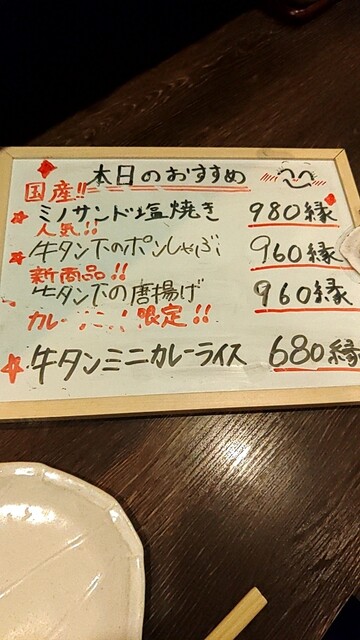 本日のおすすめ
国産!!
ミノサンド塩焼き 980縁
人気!!
牛タン下のポンしゃぶ 960縁
新商品!!
牛タン下の唐揚げ 960縁
カレー 限定!!
牛タンミニカレーライス 680縁